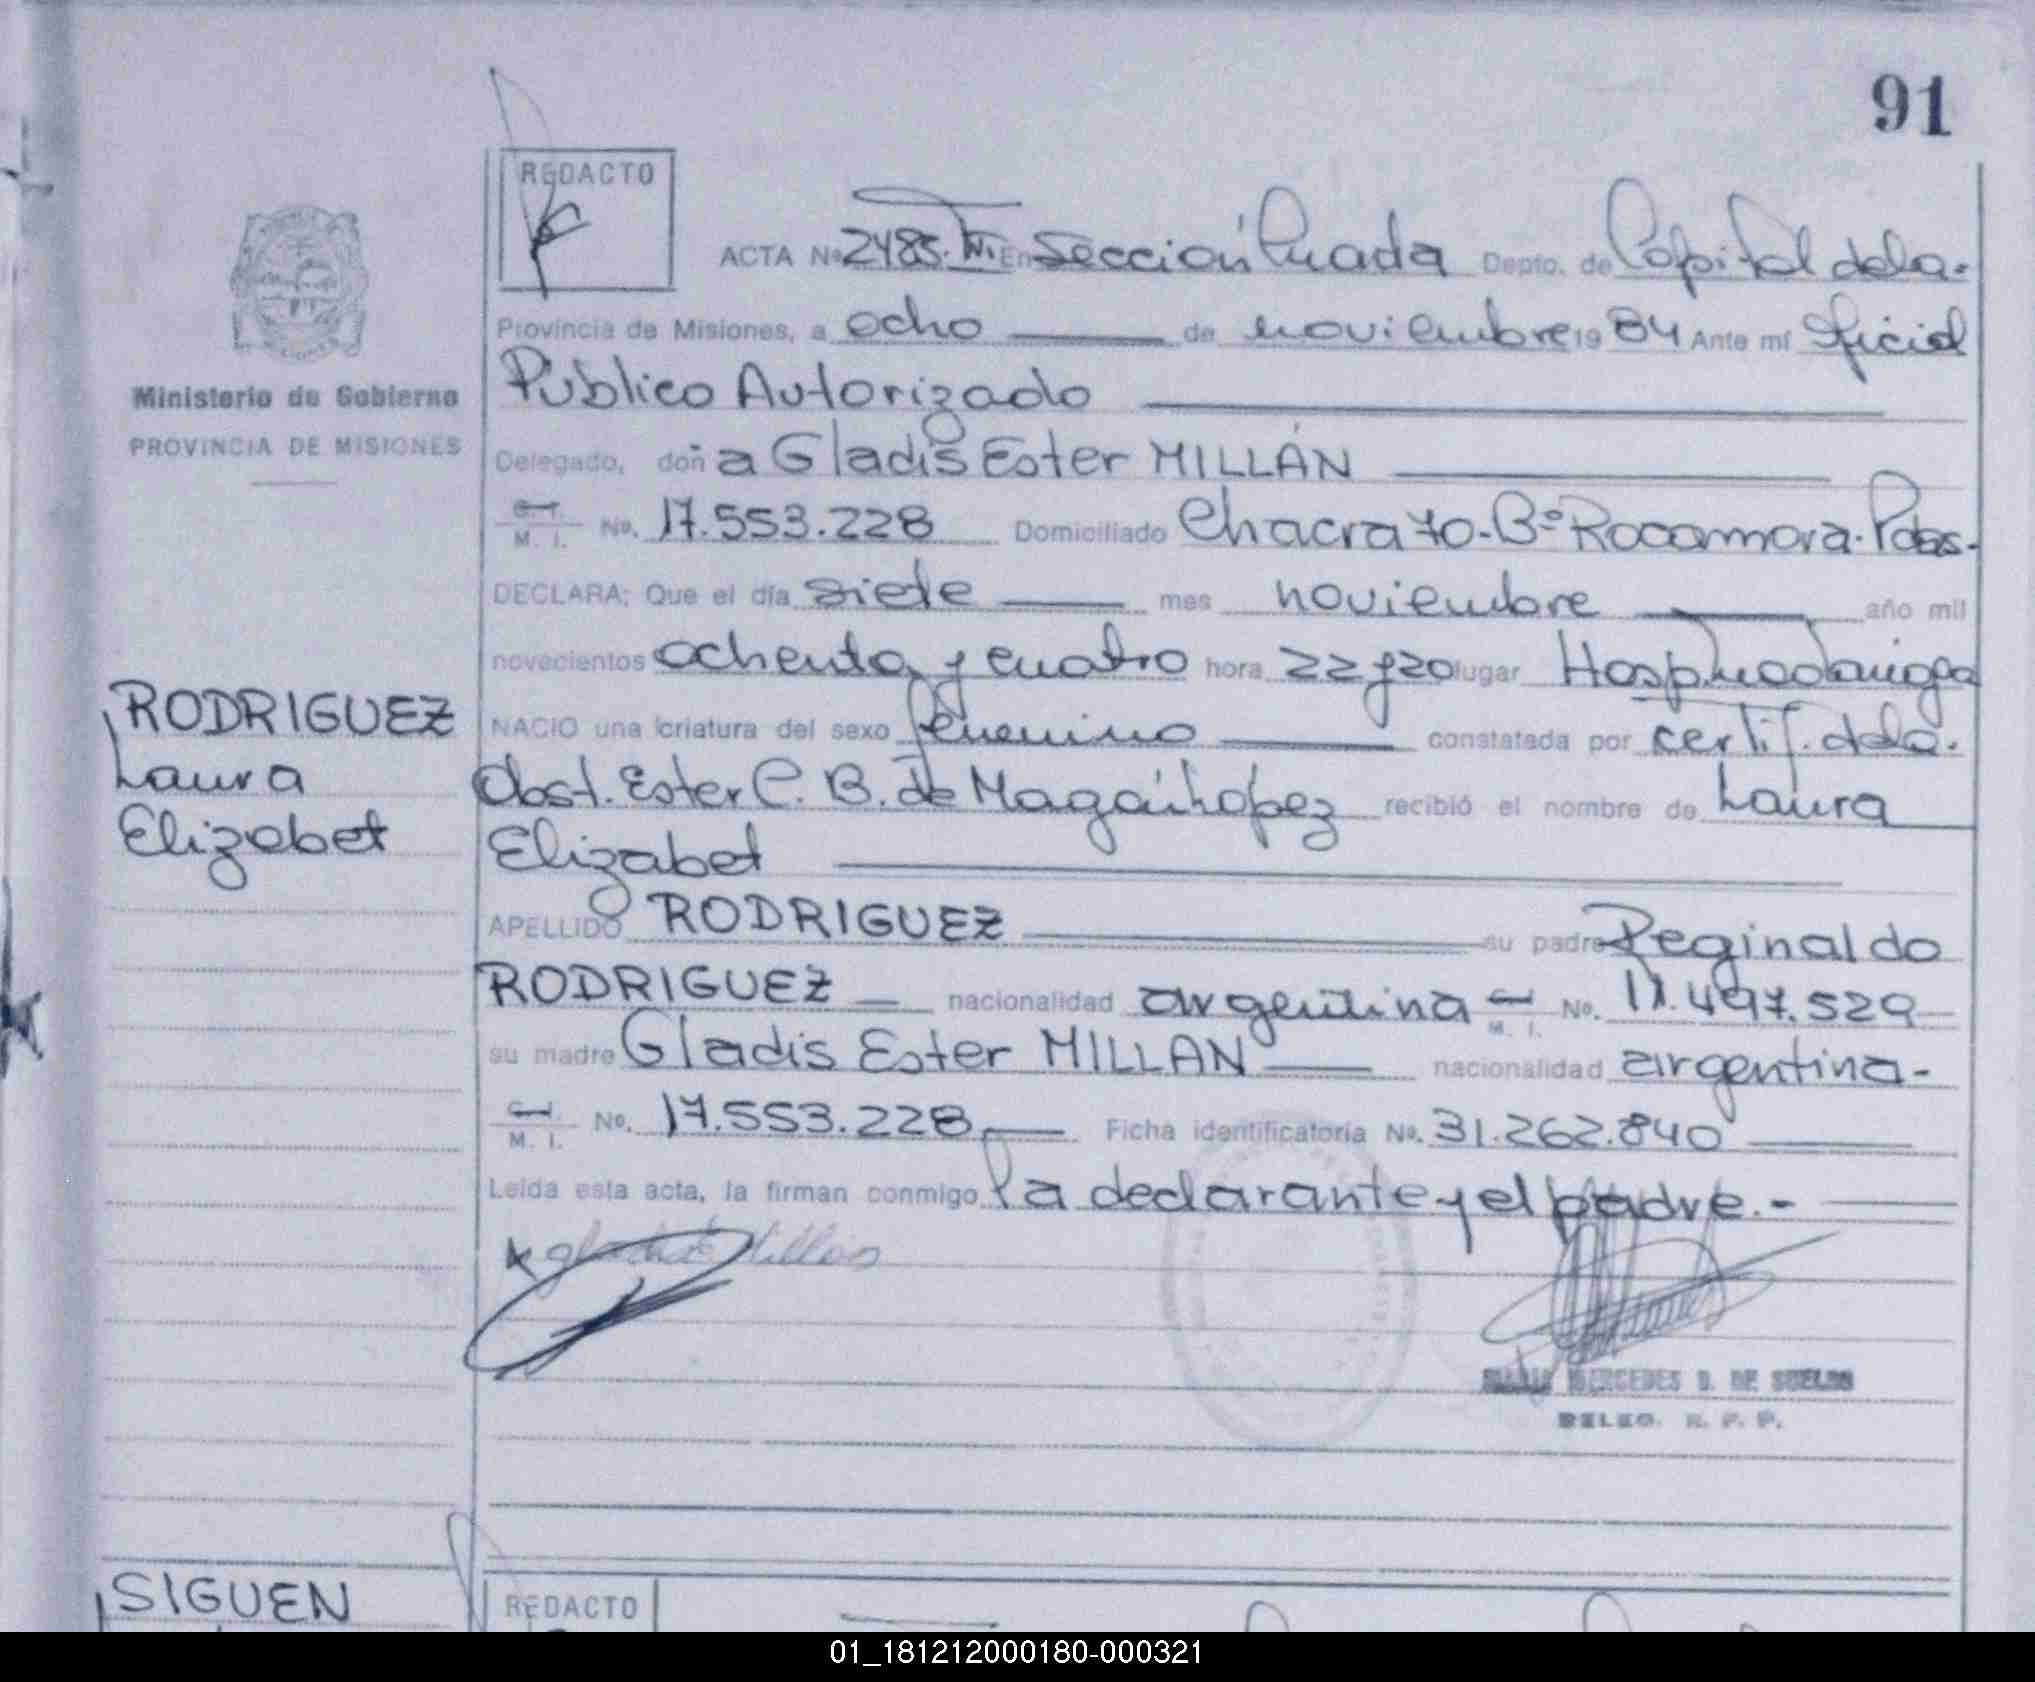 91
REDACTO
ACTA Nº 2485. T. IV. En Sección Cuarta Depto. de Capital de la.
Provincia de Misiones, a ocho de noviembre 19 84 Ante mí Oficial
Público Autorizado
Delegado, doña Gladis Ester MILLÁN
C. I. M. I. No. 17.553.228 Domiciliado Chacra 70. Bº Rocamora. Pdas.
DECLARA: Que el día siete mes noviembre año mil
novecientos ochenta y cuatro hora 22 y 20 lugar Hosp.
NACIO una criatura del sexo femenino constatada por certif. de la.
Obst. Ester C. B. de recibió el nombre de Laura
Elizabet
APELLIDO RODRIGUEZ su padre Reginaldo
RODRIGUEZ nacionalidad argentina C. I. M. I. No. 11.497.529
su madre Gladis Ester MILLAN nacionalidad argentina-
C. I. M. I. No. 17.553.228 Ficha identificatoria No. 31.262.840
Leída esta acta, la firman conmigo la declarante y el padre.-
MERCEDES
DELEG. R. P. P.
Ministerio de Gobierno
PROVINCIA DE MISIONES
RODRIGUEZ
Laura
Elizabet
SIGUEN
REDACTO
01_181212000180-000321